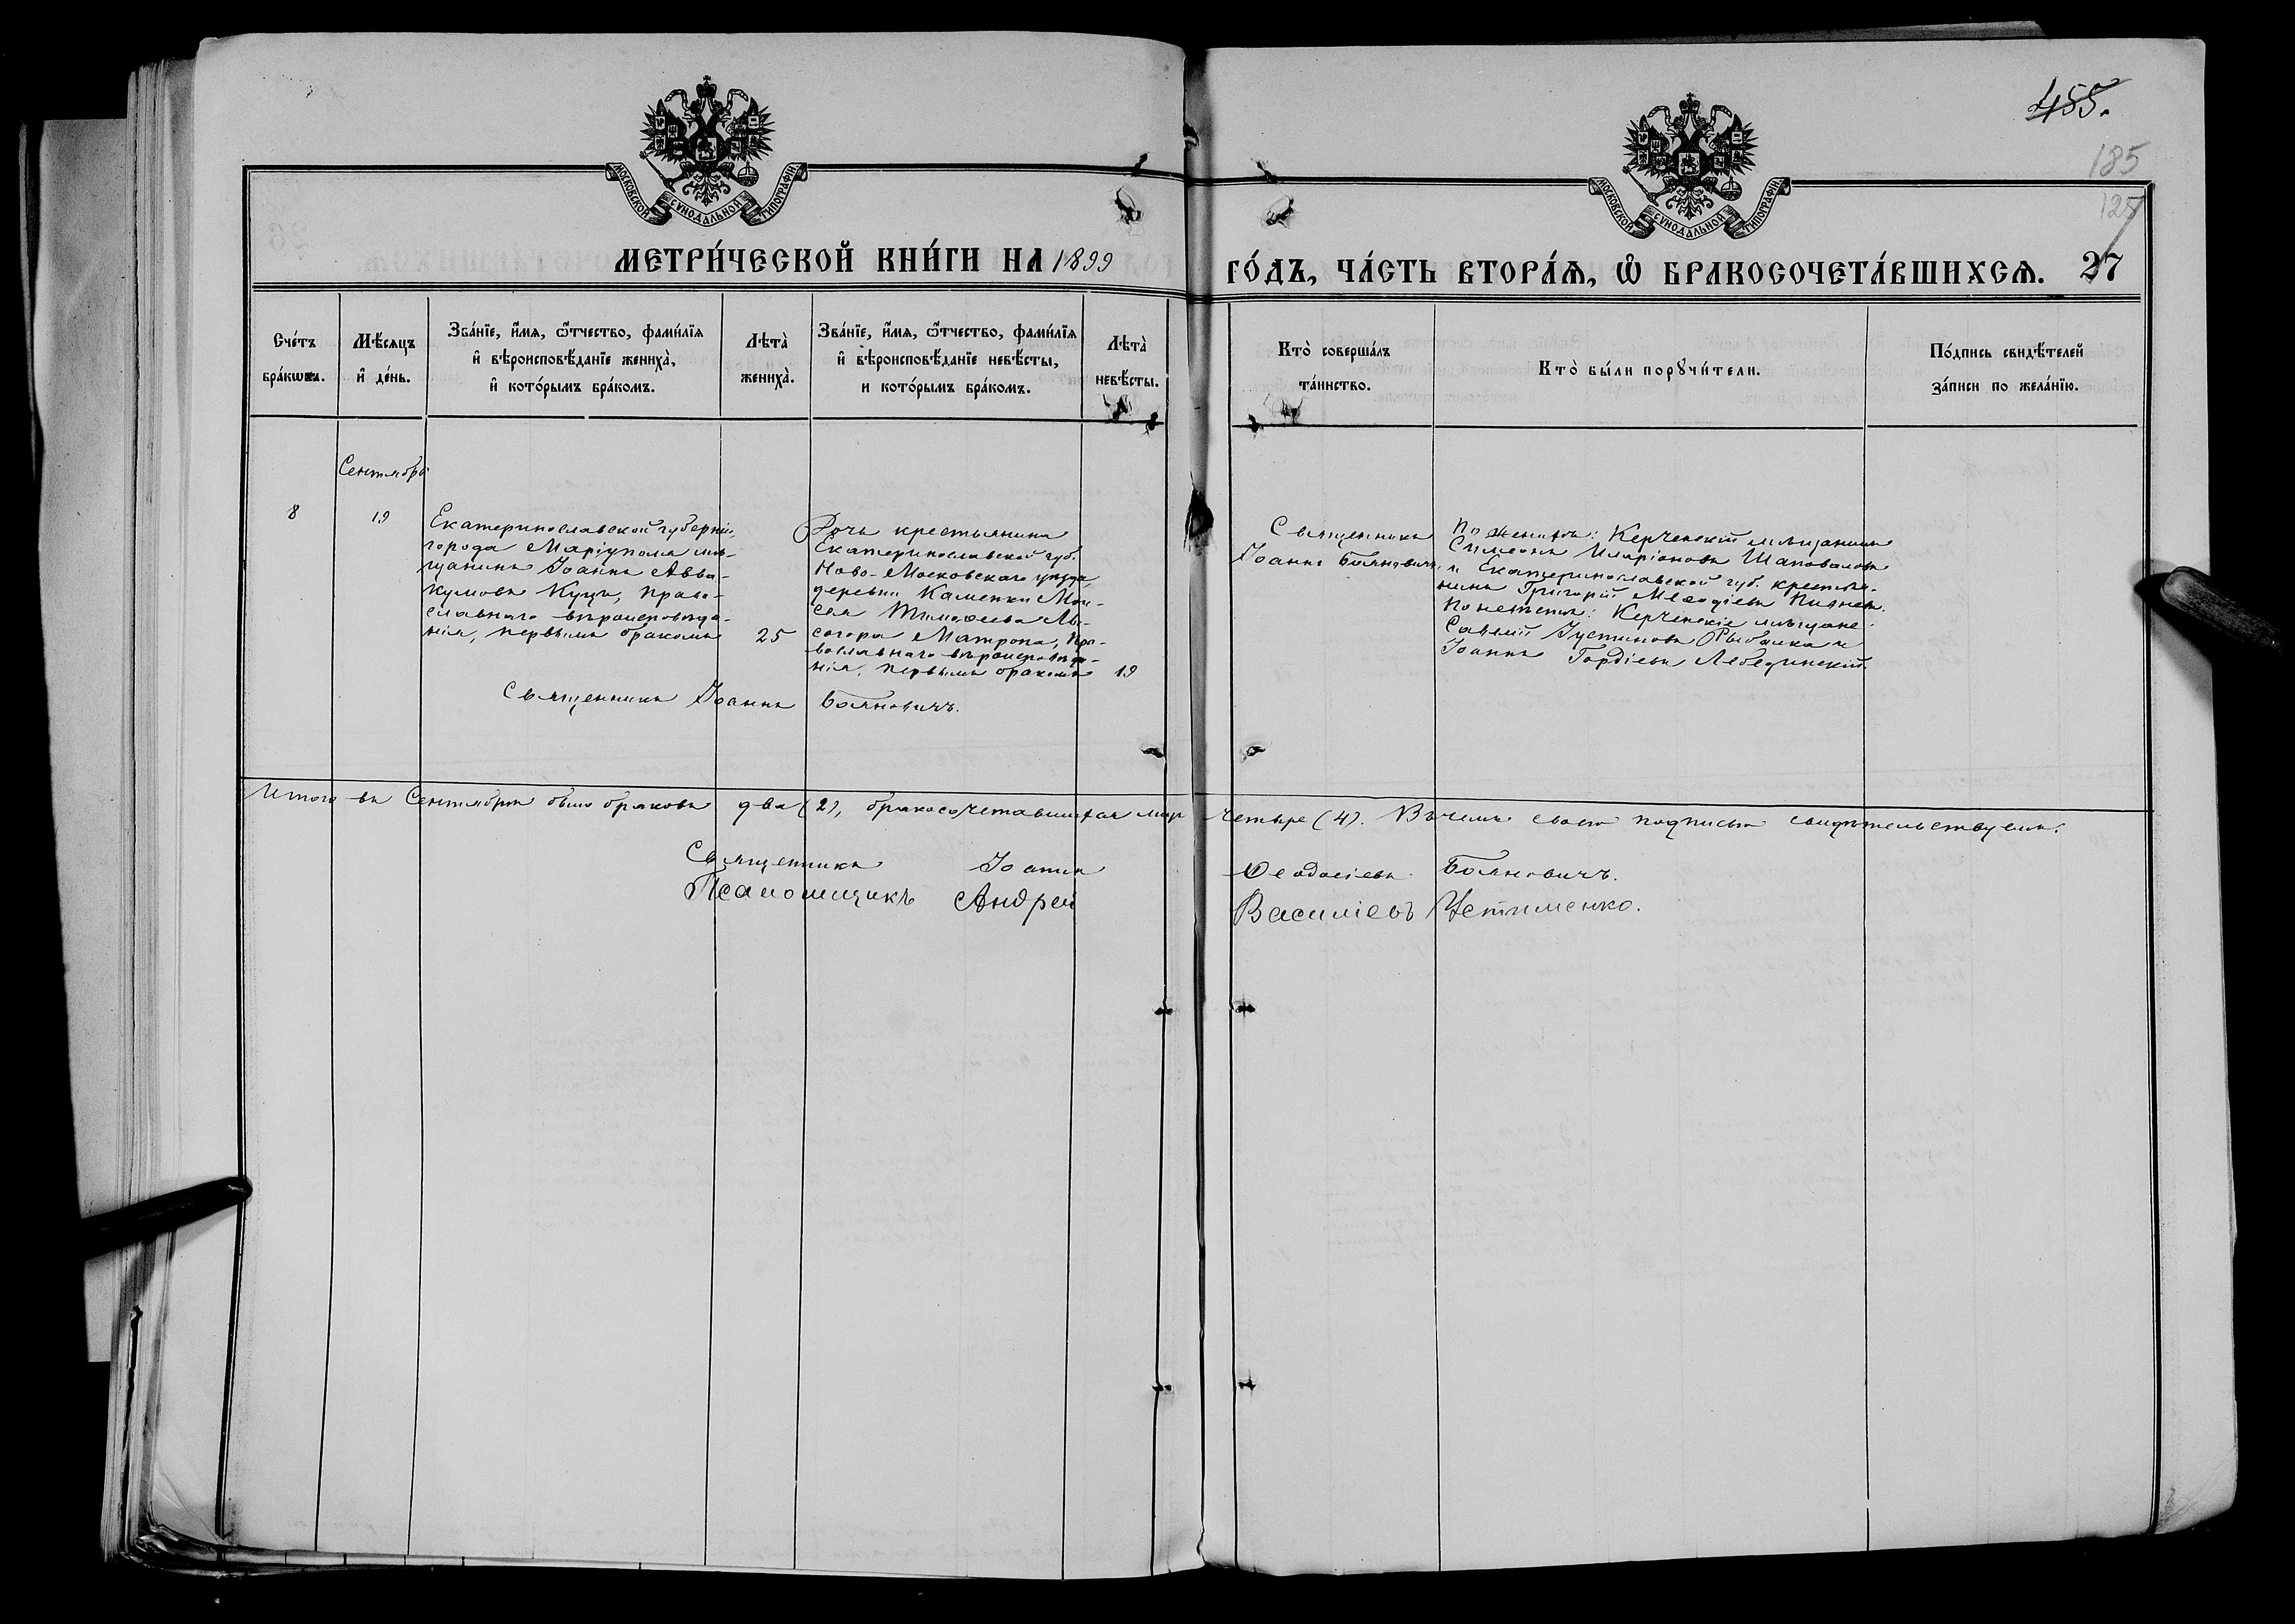 455.
185
125
МОСКОВСКОЙ СѴНОДАЛЬНОЙ ТИПОГРАФІИ.
МОСКОВСКОЙ СѴНОДАЛЬНОЙ ТИПОГРАФІИ.
МЕТРИ́ЧЕСКОЙ КНИ́ГИ НА 1899
ГО́ДЪ, ЧА́СТЬ ВТОРА́Ѧ, Ѡ҆ БРАКОСОЧЕТА́ВШИХСѦ. 27
Сче́тъ
бра́кѡвъ.
Мѣ́сяцъ
и҆ де́нь.
Зва́нїе, и҆́мя, ѻ҆́тчество, фамі́лїя
и҆ вѣроисповѣ́данїе жениха̀,
и҆ кото́рымъ бра́комъ.
Лѣта̀
жениха̀.
Зва́нїе, и҆́мя, ѻ҆́тчество, фамі́лїя
и҆ вѣроисповѣ́данїе невѣ́сты,
и кото́рымъ бра́комъ.
Лѣта̀
невѣ́сты.
Кто̀ соверша́лъ
та́инство.
Кто̀ бы́ли порꙋчи́тели.
По́дпись свидѣ́телей
за́писи по жела́нїю.
Сентябрь
8
19
Екатеринославской губерніи,
города Маріуполя мѣ-
щанинъ Іоаннъ Авва-
кумовъ Куцъ, право-
славнаго вѣроисповѣда-
нія, первымъ бракомъ
25
Дочь крестьянина
Екатеринославской губ.
Ново-Московскаго уѣзда,
деревни Каменки Мои-
сея Тимоѳеева Лы-
согора Матрона, пра-
вославнаго вѣроисповѣда-
нія, первымъ бракомъ
19
Священникъ
Іоаннъ Бояновичъ.
По женихѣ: Керченскій мѣщанинъ
Симеонъ Иларіоновъ Шаповаловъ
и Екатеринославской губ. крестья-
нинъ Григорій Меѳодіевъ
По невѣстѣ: Керченскіе мѣщане:
Савелій Іустиновъ Рыбалка и
Іоаннъ Гордіевъ Лебединскій.
Священникъ Іоаннъ Бояновичъ.
Итого въ Сентябрѣ было браковъ два (2), бракосочетавшихся лицъ четыре (4). Въ чемъ своею подписью свидѣтельствуемъ:
Священникъ Іоаннъ Ѳеодосіевъ Бояновичъ.
Псаломщикъ Андрей Василіевъ Устименко.